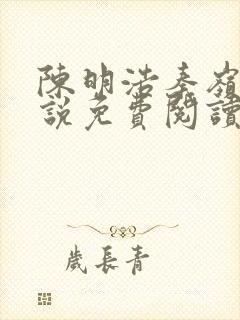 陳明浩秦嶺
說免費閱讀
歲長青